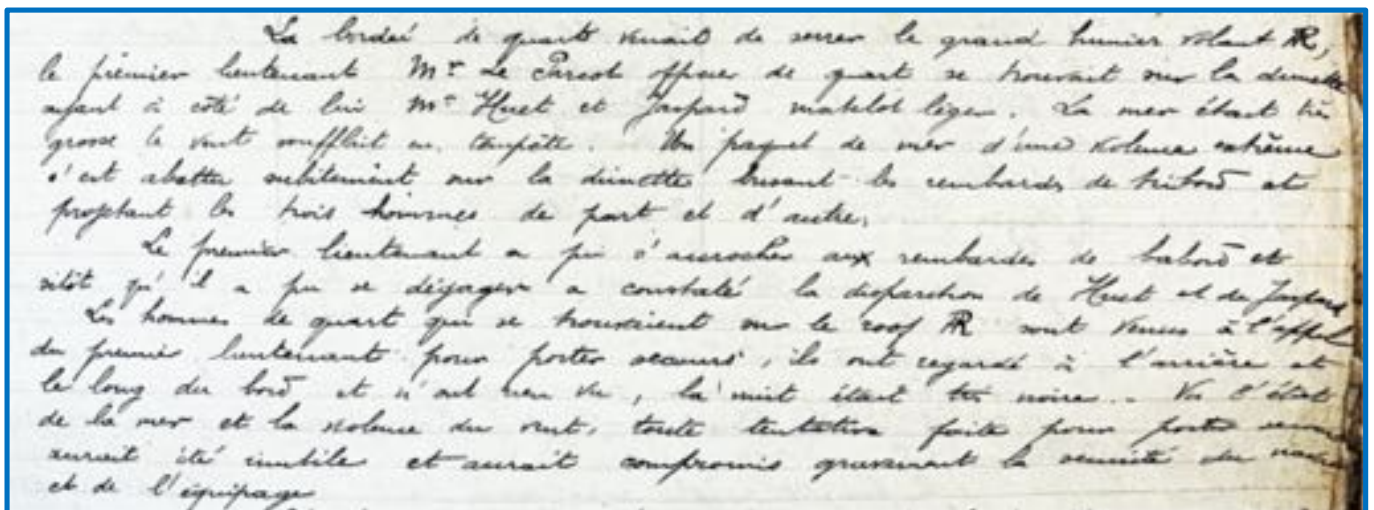 La bordée de quart venait de serrer le grand hunier volant AR,
le premier lieutenant Mr Le Parcot officier de quart se trouvait sur la dunette
ayant à côté de lui Mr Huet et Jaspard matelot léger. La mer étant très
grosse le vent soufflait en tempête. Un paquet de mer d'une violence extrême
s'est abattu subitement sur la dunette brisant les rembardes de tribord et
projetant les trois hommes de part et d'autre.
Le premier lieutenant a pu s'accrocher aux rembardes de babord et
sitôt qu'il a pu se dégager a constaté la disparition de Huet et de Jaspard
Les hommes de quart qui se trouvaient sur le roof AR sont venus à l'appel
du premier lieutenant pour porter secours, ils ont regardé à l'arrière et
le long du bord et n'ont rien vu, la nuit étant très noire. Vu l'état
de la mer et la violence du vent, toute tentative faite pour porter secours
aurait été inutile et aurait compromis gravement la sécurité du navire
et de l'équipage